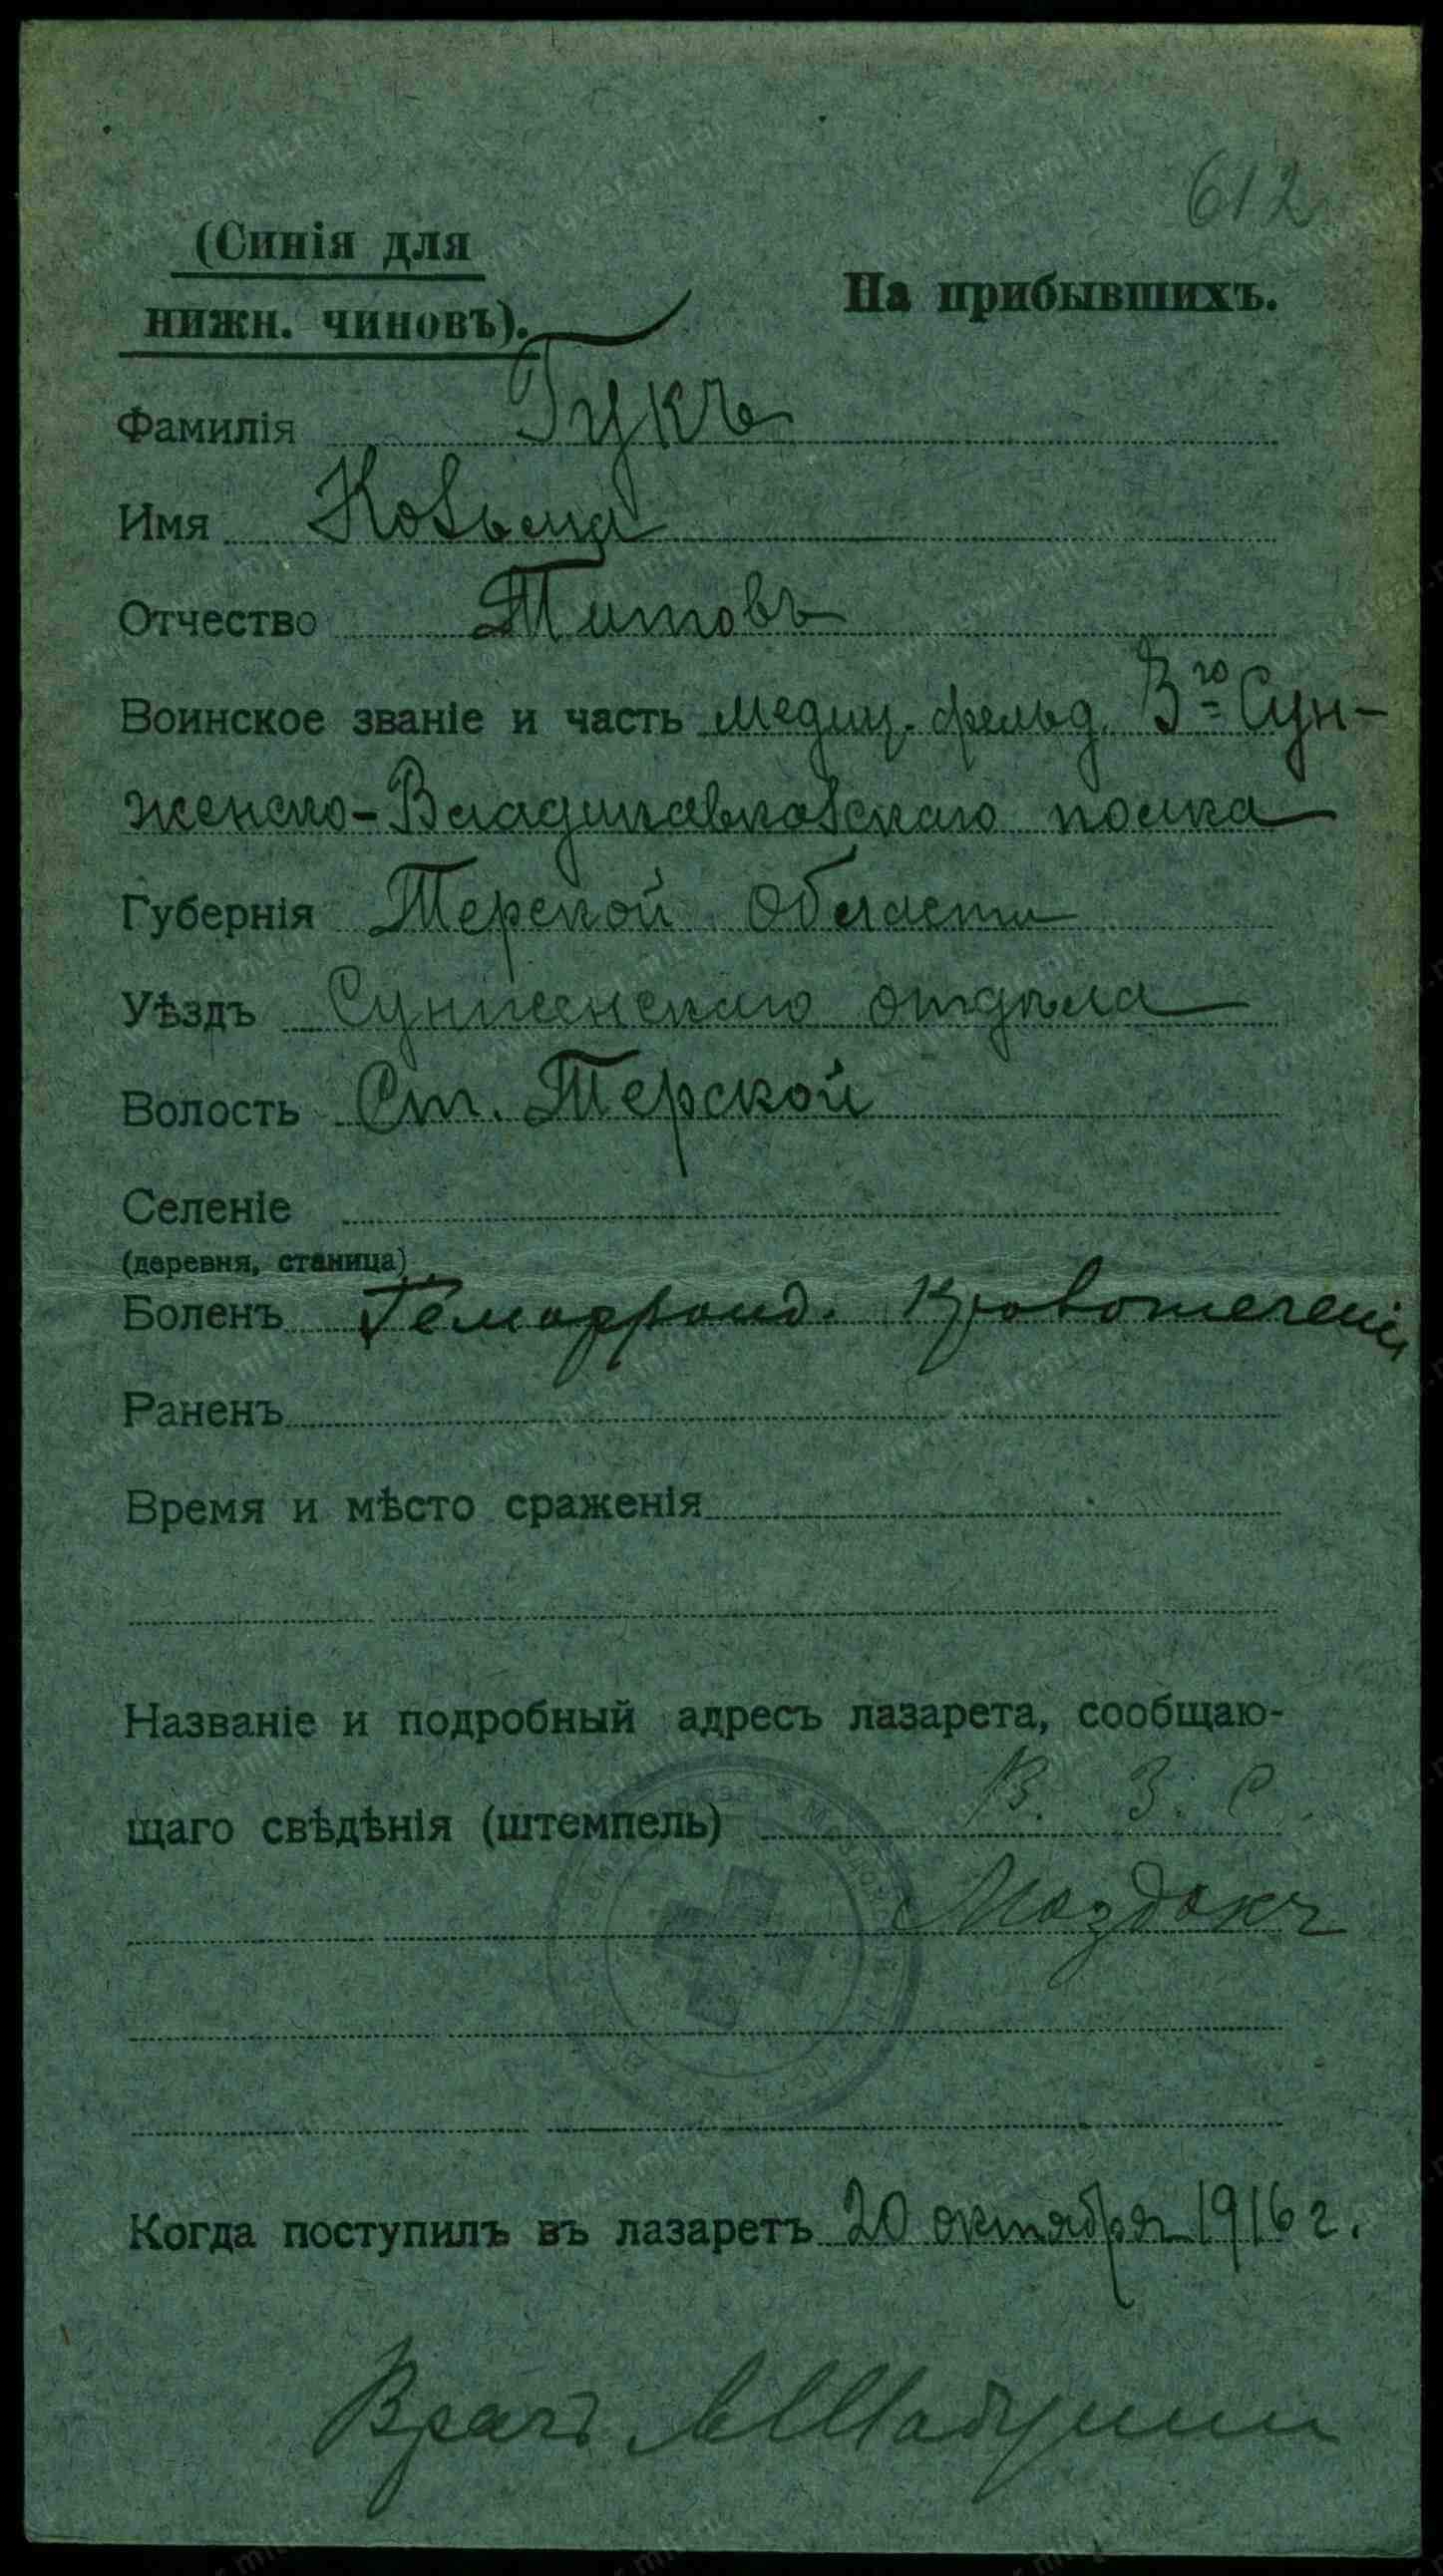 612
(Синія для
нижн. чиновъ).
На прибывшихъ.
Фамилія Гукъ
Имя Козьма
Отчество Титовъ
Воинское званіе и часть медиц. фельд. 3го Сун-
женско-Владикавказскаго полка
Губернія Терской Области
Уѣздъ Сунженскаго отдѣла
Волость Ст. Терской
Селеніе
(деревня, станица)
Боленъ Геморроид. кровотеченіе
Раненъ
Время и мѣсто сраженія
Названіе и подробный адресъ лазарета, сообщаю-
щаго свѣдѣнія (штемпель) В. З. С.
Моздокъ
Когда поступилъ въ лазаретъ 20 октября 1916 г.
Врачъ